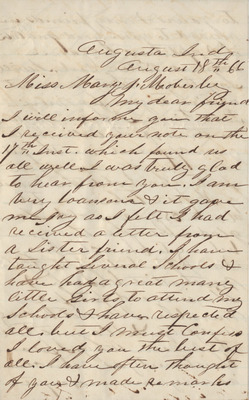 Augusta Ind
August 18th 66
Miss Mary J Moberly
My dear friend
I will inform you that
I received your note on the
17th Inst. which found us
all well I was truly glad
to hear from you. I am
very lonesome & it gave
me joy as I felt I had
received a letter from
a Sister friend. I have
taught Several Schools &
have had a great many
little Girls to attend my
Schools & have respected
all. but I must Confess
I loved you the best of
all. I have often thought
of you & made remarks